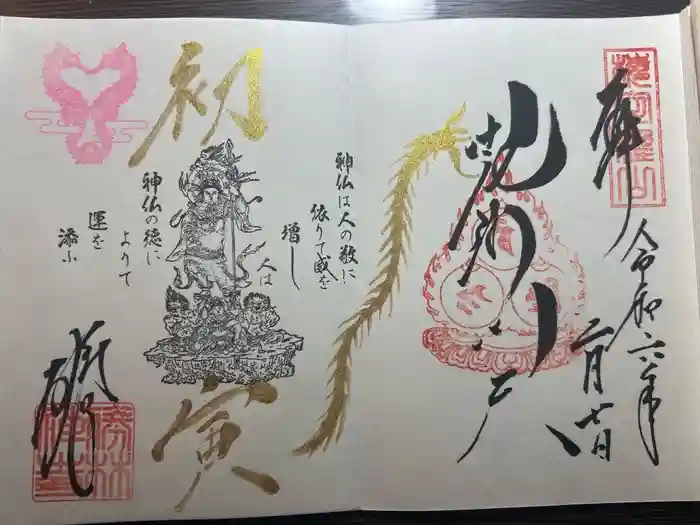 奉拝
令和六年
二月七日
毘沙門天
初寅
神仏は人の敬に
依りて威を
増し
人は
神仏の徳に
よりて
運を
添ふ
勝林寺